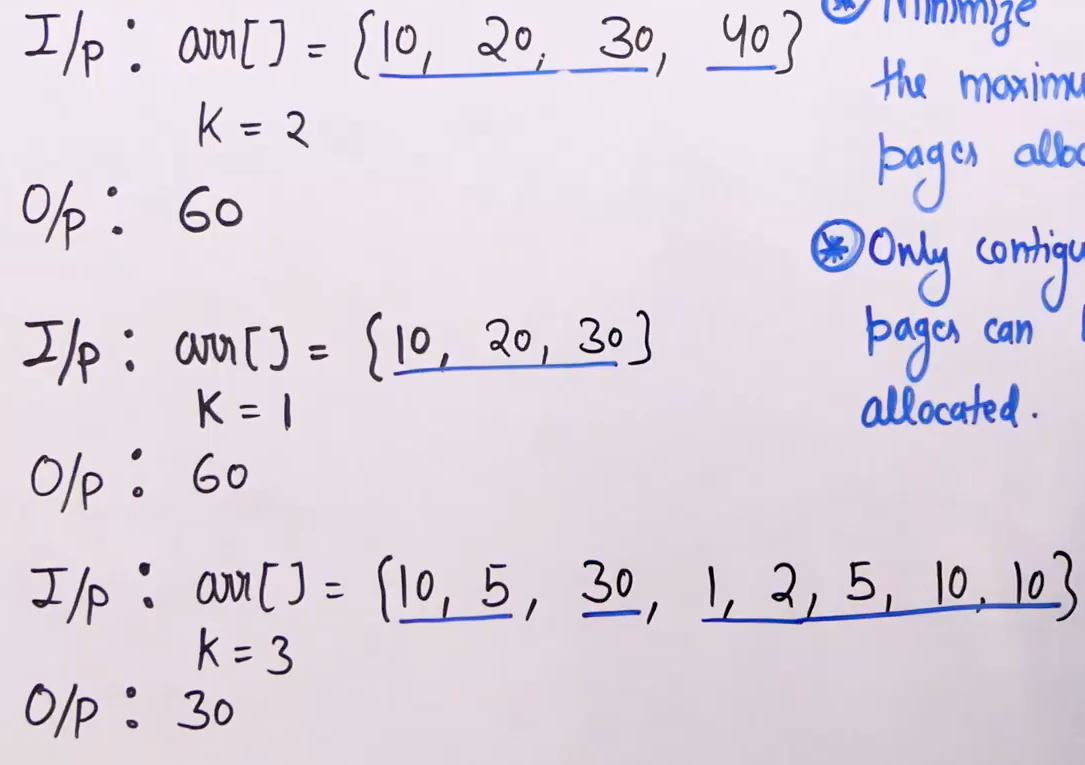 I/p : arr[] = {10, 20, 30, 40}
K = 2
O/p : 60
I/p : arr[] = {10, 20, 30}
K = 1
O/p : 60
I/p : arr[] = {10, 5, 30, 1, 2, 5, 10, 10}
K = 3
O/p : 30
Minimize
the
pages
Only
pages can
allocated.